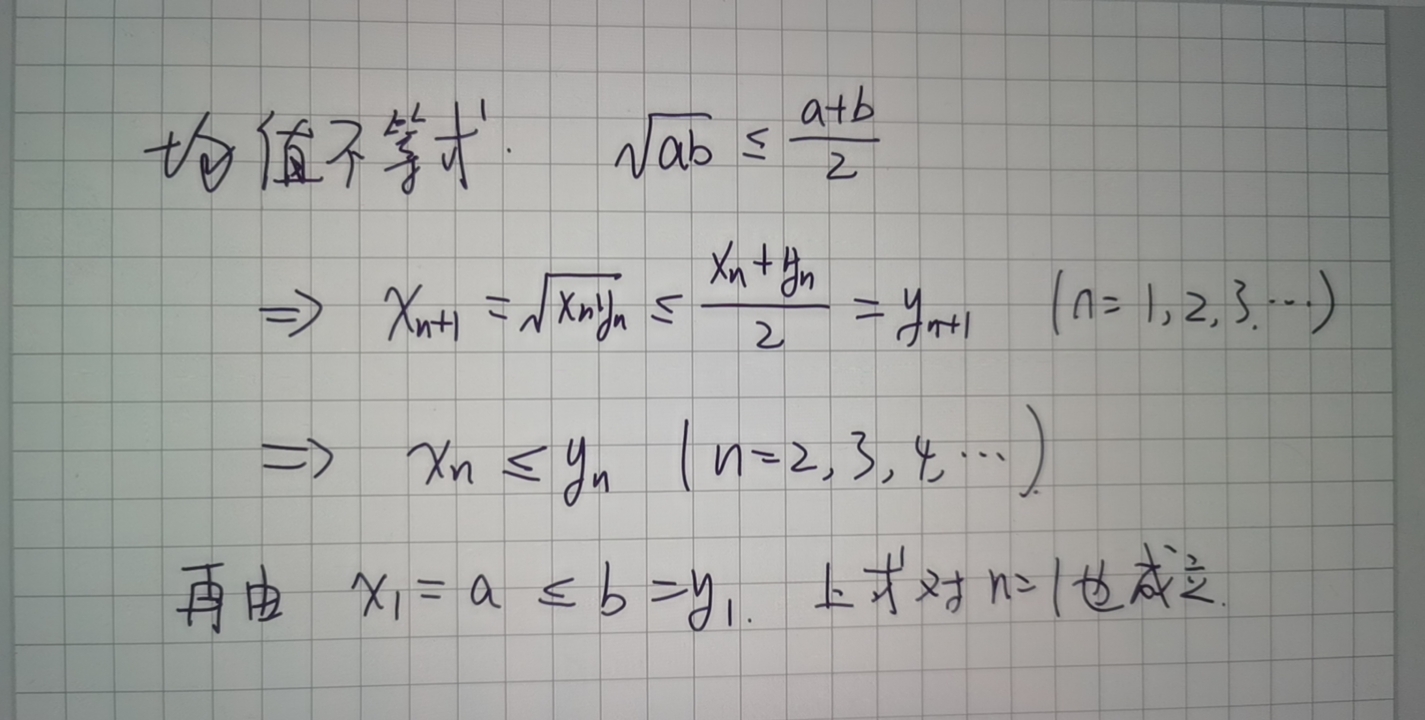 均值不等式. √ab ≤ (a+b)/2
⇒ x_{n+1} = √(x_n y_n) ≤ (x_n + y_n)/2 = y_{n+1} (n=1,2,3,⋯)
⇒ x_n ≤ y_n (n=2,3,4,⋯).
再由 x_1 = a ≤ b = y_1. 上式对 n=1 也成立.